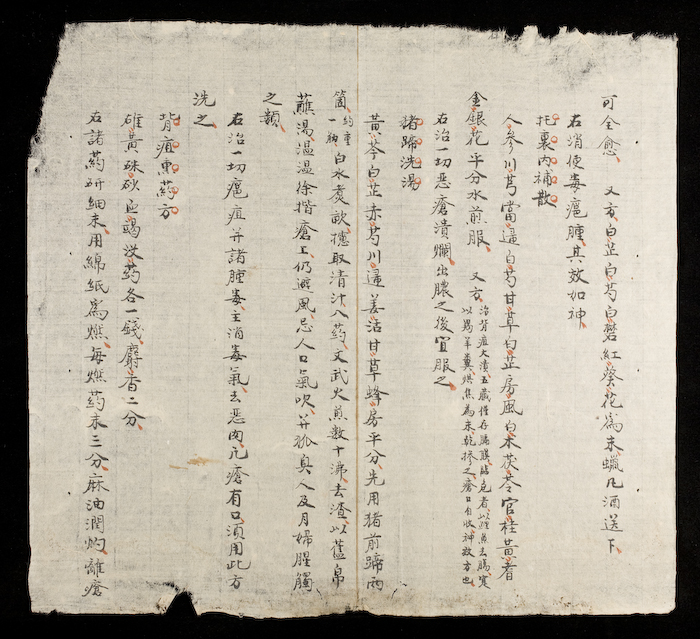 可全愈　又方白芷白芍白礬紅葵花為末蠟凡酒送下
右消使毒瘟腫其效如神
托裏內補散
人參川芎當逼白芍甘草白芷房風白朮茯苓官桂黄耆
金銀花平分水煎服　又方治背疽大潰五臟僅存膈膜臨危者以鯉魚去腸實以羯羊糞烘焦為末乾摻之瘡口自收神效方也
右治一切悪瘡潰爛出膿之後宜服之
猪蹄洗湯
黄芩白芷赤芍川逼姜活甘草蜂房平分先用猪前蹄兩
箇約重一觔白水煑軟穩取清汁入药文武火煎数十沸去渣以舊帛
蘸湯温温徐揩瘡上仍避風忌人口氣吹并狐臭人及月婦腥觸
之類
右治一切瘟疽并諸腫毒主消毒氣去悪肉凡瘡有口須用此方
洗之
背疽熏药方
雄黄硃砂血竭没药各一錢麝香二分
右諸药研細末用綿紙為燃每燃药末三分麻油潤灼離瘡